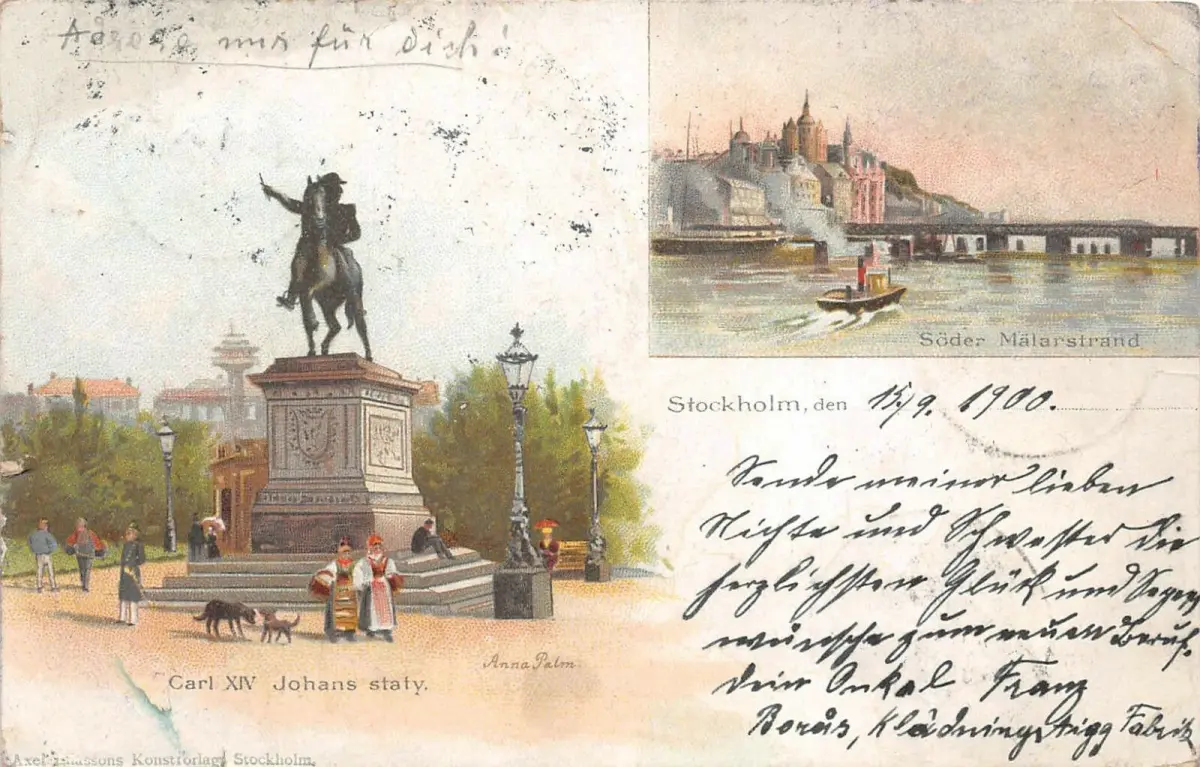 Adresse nur für dich!
Söder Mälarstrand
Stockholm, den 15/9. 1900.
Sende meiner lieben
Nichte und Schwester die
herzlichsten Glück und Segens
wünsche zum neuen Beruf.
dein Onkel Franz
Borås, Klädnings Fabrik
Anna Palm
Carl XIV Johans staty.
Konstförlag, Stockholm.